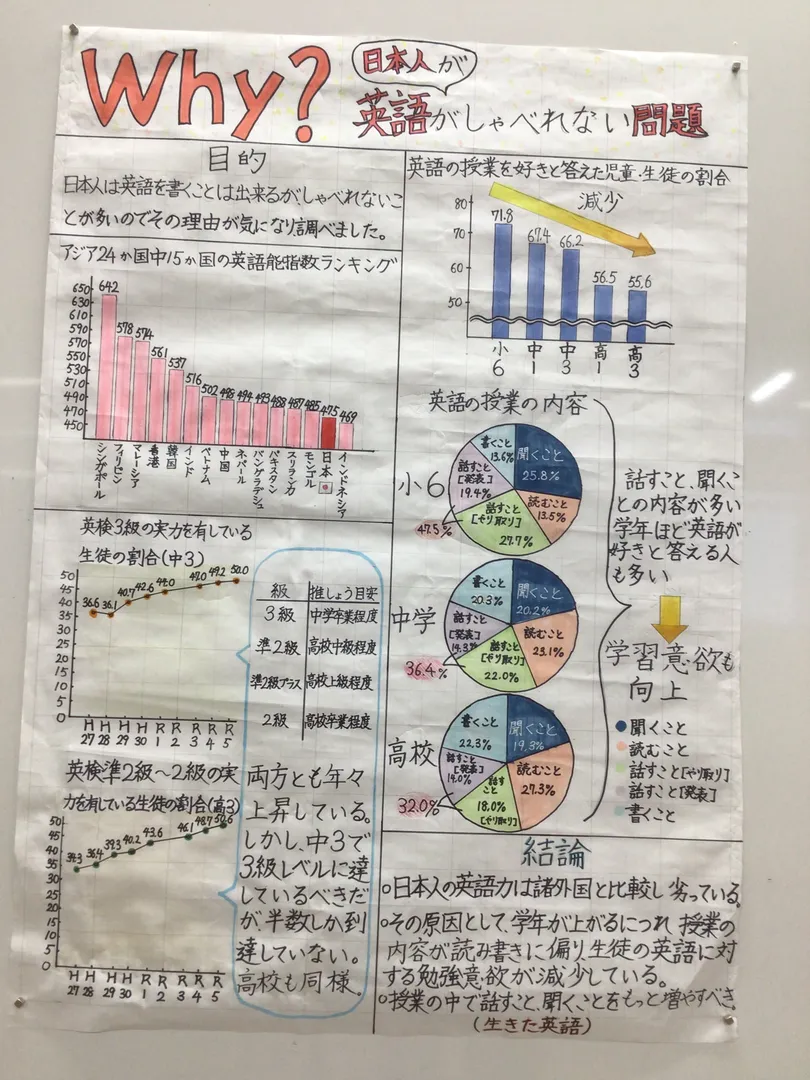 Why?
日本人が
英語がしゃべれない問題
目的
日本人は英語を書くことは出来るが、しゃべれないこ
とが多いのでその理由が気になり調べました。
アジア24か国中15か国の英語能指数ランキング
650
630
610
590
570
550
530
510
490
470
450
642
578
574
561
537
516
502
498
494
493
488
487
485
475
469
シンガポール
フィリピン
マレーシア
香港
韓国
インド
ベトナム
中国
ネパール
バングラデシュ
パキスタン
スリランカ
モンゴル
日本
インドネシア
英検3級の実力を有している
生徒の割合(中3)
50
45
40
35
30
25
20
15
10
5
0
36.6
36.1
40.7
42.6
44.0
47.0
49.2
50.0
H27
H28
H29
H30
R1
R2
R3
R4
R5
級 推しょう目安
3級 中学卒業程度
準2級 高校中級程度
準2級プラス 高校上級程度
2級 高校卒業程度
英検準2級〜2級の実
力を有している生徒の割合(高3)
50
45
40
35
30
25
20
15
10
5
0
36.4
39.3
40.2
43.6
46.1
48.7
50.6
H27
H28
H29
H30
R1
R2
R3
R4
R5
両方とも年々
上昇している。
しかし、中3で
3級レベルに達
しているべきだ
が、半数しか到
達していない。
高校も同様。
英語の授業を好きと答えた児童・生徒の割合
減少
80
70
60
50
71.8
67.4
66.2
56.5
55.6
小6
中1
中3
高1
高3
英語の授業の内容
小6
聞くこと
25.8%
読むこと
13.5%
話すこと
[やり取り]
27.7%
話すこと
[発表]
19.4%
書くこと
13.6%
47.5%
中学
聞くこと
20.2%
読むこと
23.1%
話すこと
[やり取り]
22.0%
話すこと
[発表]
14.3%
書くこと
20.3%
36.4%
高校
聞くこと
19.3%
読むこと
27.3%
話すこと
18.0%
[やり取り]
話すこと
[発表]
14.0%
書くこと
22.3%
32.0%
話すこと、聞くこ
との内容が多い
学年ほど英語が
好きと答える人
も多い
学習意欲も
向上
聞くこと
読むこと
話すこと[やり取り]
話すこと[発表]
書くこと
結論
○日本人の英語力は諸外国と比較し劣っている。
○その原因として、学年が上がるにつれ授業の
内容が読み書きに偏り、生徒の英語に対
する勉強意欲が減少している。
○授業の中で話すこと、聞くことをもっと増やすべき。
(生きた英語)